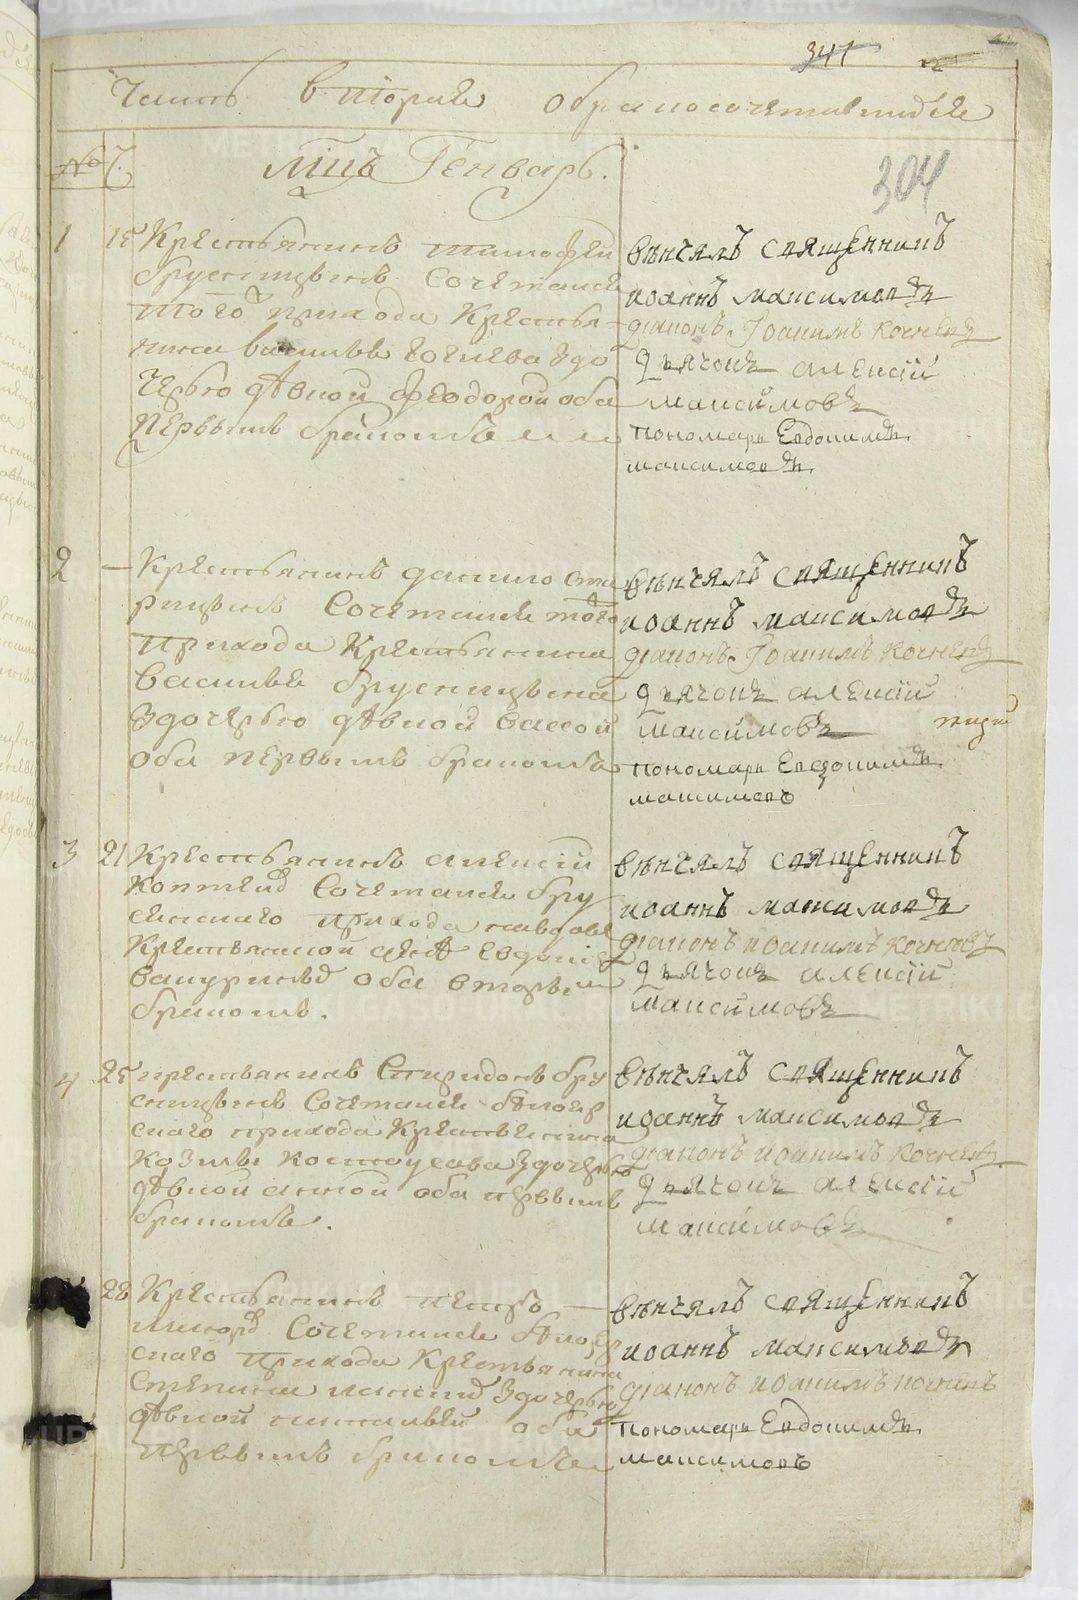 341
Часть вторая о бракосочетавшихся
№ Ч.
304
мцъ Генварь.
1 15 Крестьянинъ тимофеи
брусницынъ Сочетался
того прихода Крестья-
нина василья здо
черью дѣвкой феодорой оба
первымъ бракомъ
вѣнчалъ священникъ
иоаннъ максимовъ
дiаконъ Iоакимъ кочневъ
дьячокъ алексiй
максимовъ
пономарь Евдокимъ
максимовъ
2 — Крестьянинъ данило
Сочетался того
прихода Крестьянина
василья брусницына
здочерью дѣвкой вассой
оба первымъ бракомъ
вѣнчалъ священникъ
иоаннъ максимовъ
дiаконъ Iоакимъ кочневъ
дьячокъ алексiй
максимовъ
пономарь Евдокимъ
максимовъ
3 21 Крестьянинъ алексiй
коптевъ Сочетался бру
сянскаго прихода со вдовой
Крестьянской женѣ
оба вторымъ
бракомъ.
вѣнчалъ священникъ
иоаннъ максимовъ
дiаконъ иоакимъ кочневъ
дьячокъ алексiй
максимовъ
4 25 крестьянинъ Спиридонъ бру
сницынъ Сочетался бѣлояр
скаго прихода Крестьянина
козмы костоусова здочерью
дѣвкой анной оба первымъ
бракомъ.
вѣнчалъ священникъ
иоаннъ максимовъ
дiаконъ иоакимъ кочневъ
дьячокъ алексiй
максимовъ
28 Крестьянинъ петръ —
Сочетался бѣлояр
скаго прихода Крестьянина
степана здочерью
дѣвкой натальей оба
первымъ бракомъ
вѣнчалъ священникъ
иоаннъ максимовъ
дiаконъ иоакимъ кочневъ
пономарь Евдокимъ
максимовъ